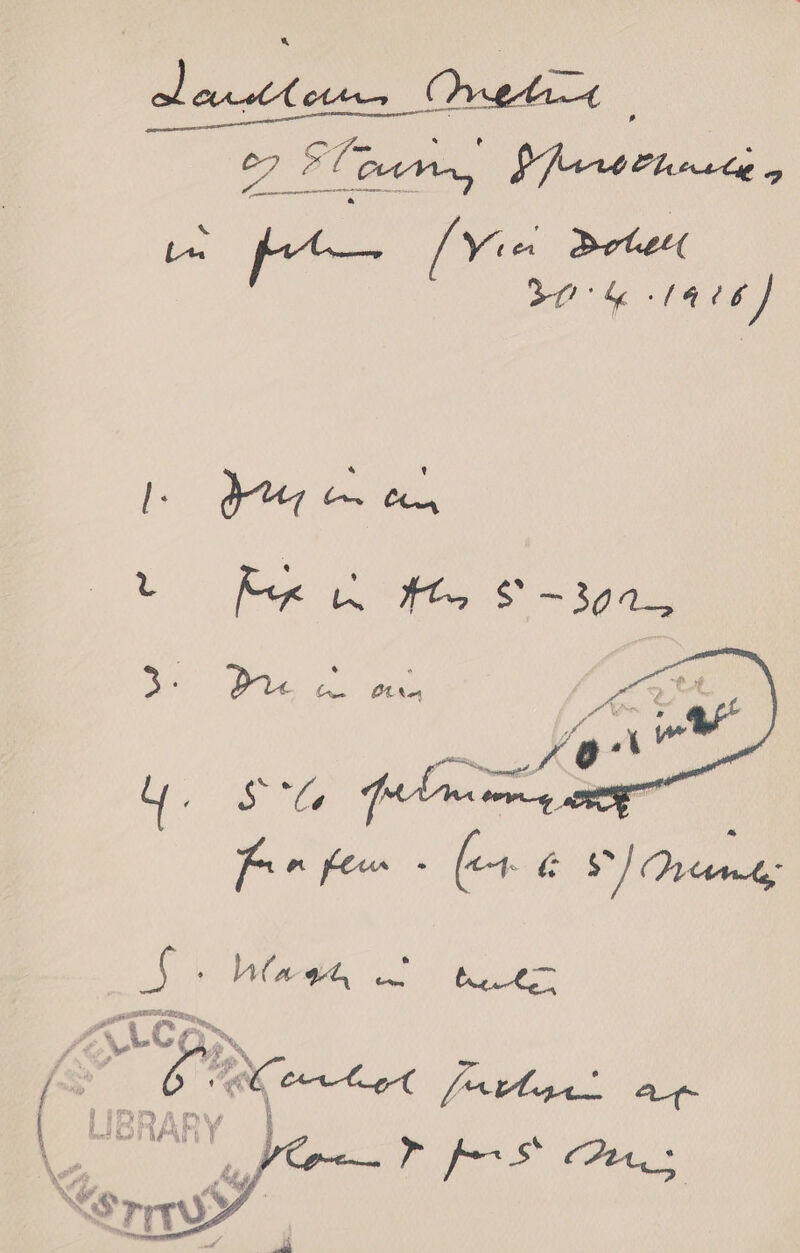 Laidlaws Method
of Staining Spirochaetes
in films (Via Dobell
30.4.1916)
1. Dry in air
2 Fix in Alc 5-30 ms
3. Dry in air
in 2cc
0.1 in 2cc
4. 5% permangant
for a few - (up to 5) Minutes
5. Wash in water
6. Carbol Fuchsin at
Room T for 5 Mins
WELLCOME
LIBRARY
INSTITUTE